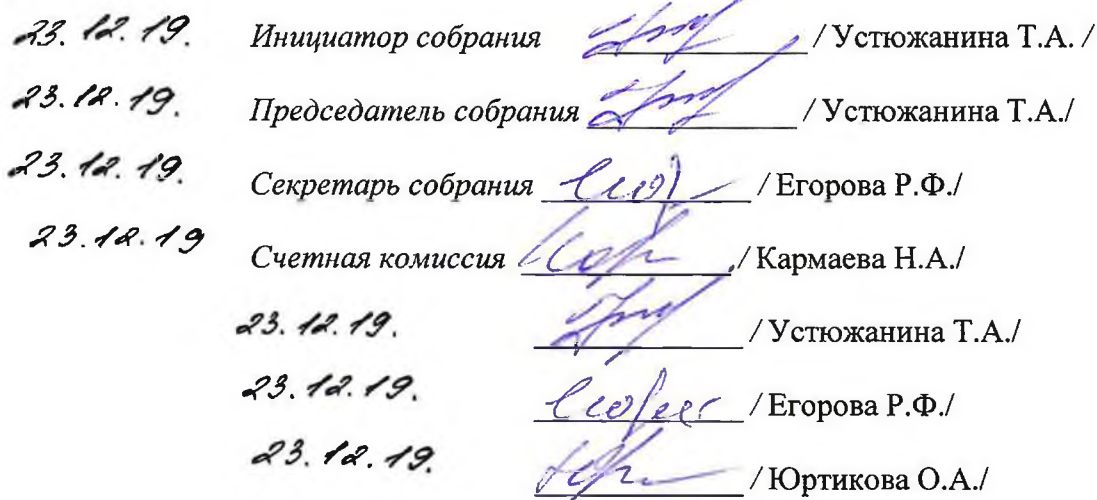 23.12.19. Инициатор собрания / Устюжанина Т.А. /
23.12.19. Председатель собрания / Устюжанина Т.А./
23.12.19. Секретарь собрания / Егорова Р.Ф./
23.12.19 Счетная комиссия / Кармаева Н.А./
23.12.19. / Устюжанина Т.А./
23.12.19. / Егорова Р.Ф./
23.12.19. / Юртикова О.А./